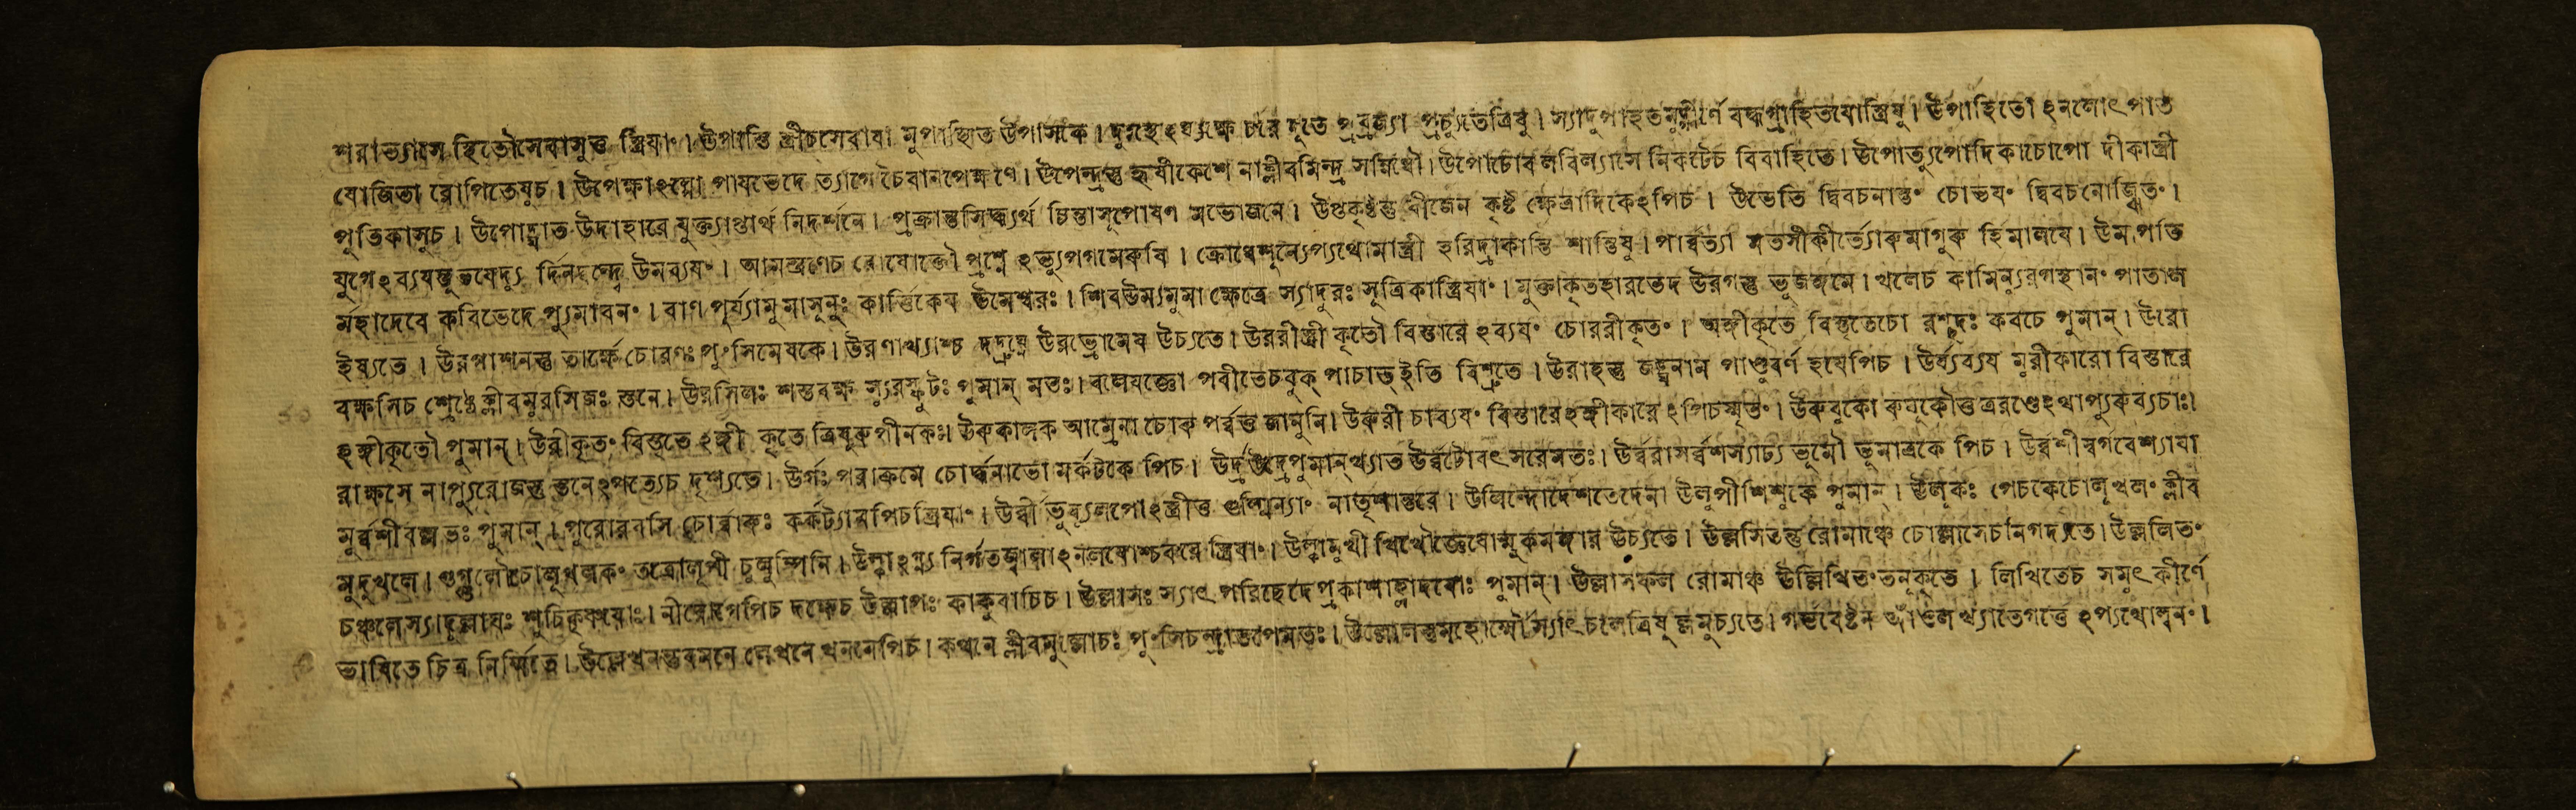 শরাভ্যাসে স্থিতৌসেবাসুত্ত স্ত্রিযাং। উপাস্তি স্ত্রীচসেবাযা মুপাস্থিত উপাসকে। প্রব্রজ্যা প্রচ্যুতেত্রিষু। স্যাদুপাহিতমুদ্গীর্ণে বদ্ধগ্রাহিতযোস্ত্রিষু। উপাহিতো ঽনলোৎপাত
যোজিতা রোপিতেষুচ। উপেক্ষা পাযভেদে ত্যাগে চৈবানপেক্ষণে। উপেন্দ্রস্তু হৃষীকেশে নাক্লীবমিন্দ্র সন্নিধৌ। উপোঢোবলবিন্যাসে নিকটেচ বিবাহিতে। উপোত্যুপোদিকাচোপো দীকাস্ত্রী
পুতিকাসুচ। উপোদ্ঘাত উদাহারে যুক্ত্যাপ্তার্থ নিদর্শনে। প্রক্রান্তসিদ্ধ্যর্থ চিন্তাসূপোষণ মভোজনে। উপ্তকৃষ্টন্তু বীজেন কৃষ্ট ক্ষেত্রাদিকেঽপিচ। উভেতি দ্বিবচনান্তং চোভযং দ্বিবচনোজ্ঝিতং।
যুগেঽব্যযন্তূভযেদ্যু র্দিনদ্বন্দ্বে উমব্যযং। আমন্ত্রণেচ রোষোক্তৌ প্রশ্নে ঽভ্যুপগমেকবি। হরিদ্রাকান্তি শান্তিষু। পার্ব্বত্যা মতসীকীর্ত্যোরুমাগুরু র্হিমালযে। উমাপতি
র্মহাদেবে কবিভেদে প্যুমাবনং। বাণ পুর্য্যামুমাসূনুঃ কার্ত্তিকেয উমেশ্বরঃ। শিবউম্যমুমা ক্ষেত্রে স্যাদুরঃ সূত্রিকাস্ত্রিযাং। মুক্তাকৃতহারভেদ উরগস্তু ভুজঙ্গমে। খলেচ কামিন্যুরগস্থানং পাতাল
ইষ্যতে। উরগাশনস্তু তার্ক্ষে চোরণঃ পুংসিমেষকে। উরণাখ্যশ্চ দদ্রুঘ্নে উরভ্রোমেষ উচ্যতে। উররীস্ত্রী কৃতৌ বিস্তারে ঽব্যযং চোররীকৃতং। অঙ্গীকৃতে বিস্তৃতেচো রশ্ছদঃ কবচে পুমান্। উরো
বক্ষসিচ শ্রেষ্ঠে ক্লীবমুরসিজঃ স্তনে। উরসিলঃ শস্তবক্ষ স্যুরস্ফুটঃ পুমান্ মতঃ। বলেযজ্ঞো পবীতেচবুক্ পাচাত্ত্ ইতি বিশ্রুতে। উরাহস্তু জঙ্ঘনাম পাণ্ডুবর্ণ হযেপিচ। উর্য্যব্যয মূরীকারো বিস্তারে
ঽঙ্গীকৃতৌ পুমান্। উরীকৃতং বিস্তৃতে ঽঙ্গী কৃতে ত্রিষুরুপীনকঃ। উরুকালক আম্রেনা চোরু পর্ব্বত্তু জানুনি। উরুরী চাব্যযং বিস্তারেঽঙ্গীকারেঽপিচস্মৃতং।
রাক্ষসে নাপ্যুরোজস্তু স্তনেঽপত্যেচ দৃশ্যতে। উর্গঃ পরাক্রমে চোর্দ্ধনাভো মর্কটকে পিচ। উর্ব্বটোবৎসরেমতঃ। উর্ব্বরাসর্ব্বশস্যাঢ্য ভূমৌ ভূমাত্রকে পিচ। উর্ব্বশীস্বর্গবেশ্যাযা
মুর্ব্বশীবল্লভঃ পুমান্। পুরোরবসি চোর্ব্বারুঃ কর্কট্যামপিচস্ত্রিযাং। উর্ব্বী ভূব্যুলপোঽস্ত্রীতু গুল্মিন্যাং নাতৃণান্তরে। উলিন্দোদেশভেদেনা উলুপীশিশুকে পুমান্। উলূকঃ পেচকেচোলূখলং ক্লীব
মুদুখলে। গুগ্গুলৌচোলূখলকং তত্রোলূপী চুলুম্পিনি। উল্কাঽগ্ন্য নির্গতজ্বালাঽনলযোশ্চবরে স্ত্রিযাং। উচ্যতে। উল্লসিতন্তু রোমাঞ্চে চোল্লাসেচনিগদ্যতে। উল্ললিতং
চঞ্চলেস্যাদুল্লাঘঃ শুচিকৃষ্ণযোঃ। নীরোগেপিচ দক্ষেচ উল্লাপঃ কাকুবাচিচ। উল্লাসঃ স্যাৎ পরিছেদেপ্রকাশাহ্লাদযোঃ পুমান্। উল্লাসকল রোমাঞ্চ উল্লিখিতংতনূকৃতে। লিখিতেচ সমুৎকীর্ণে
ভাবিতে চিত্র নির্ম্মিতে। উল্লেখনন্তুবমনে লেখনে খননেপিচ। কথনে ক্লীবমুল্লোচঃ পুংসিচন্দ্রাতপেমতঃ। উল্লোলস্তুমহোর্ম্মৌ স্যাৎ চলেত্রিষূ ল্বমুচ্যতে। গর্ভবেষ্টন